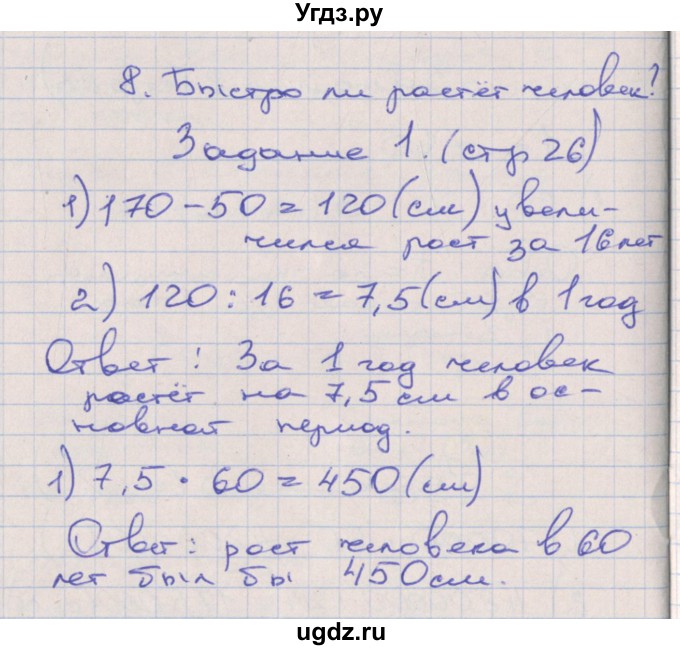 Угдз.ру
8. Быстро ли растёт человек?
Задание 1. (стр 26)
1) 170 - 50 = 120 (см) увели-
чился рост за 16 лет
2) 120 : 16 = 7,5 (см) в 1 год
Ответ: За 1 год человек
растёт на 7,5 см в ос-
новной период.
1) 7,5 · 60 = 450 (см)
Ответ: рост человека в 60
лет был бы 450 см.
ugdz.ru